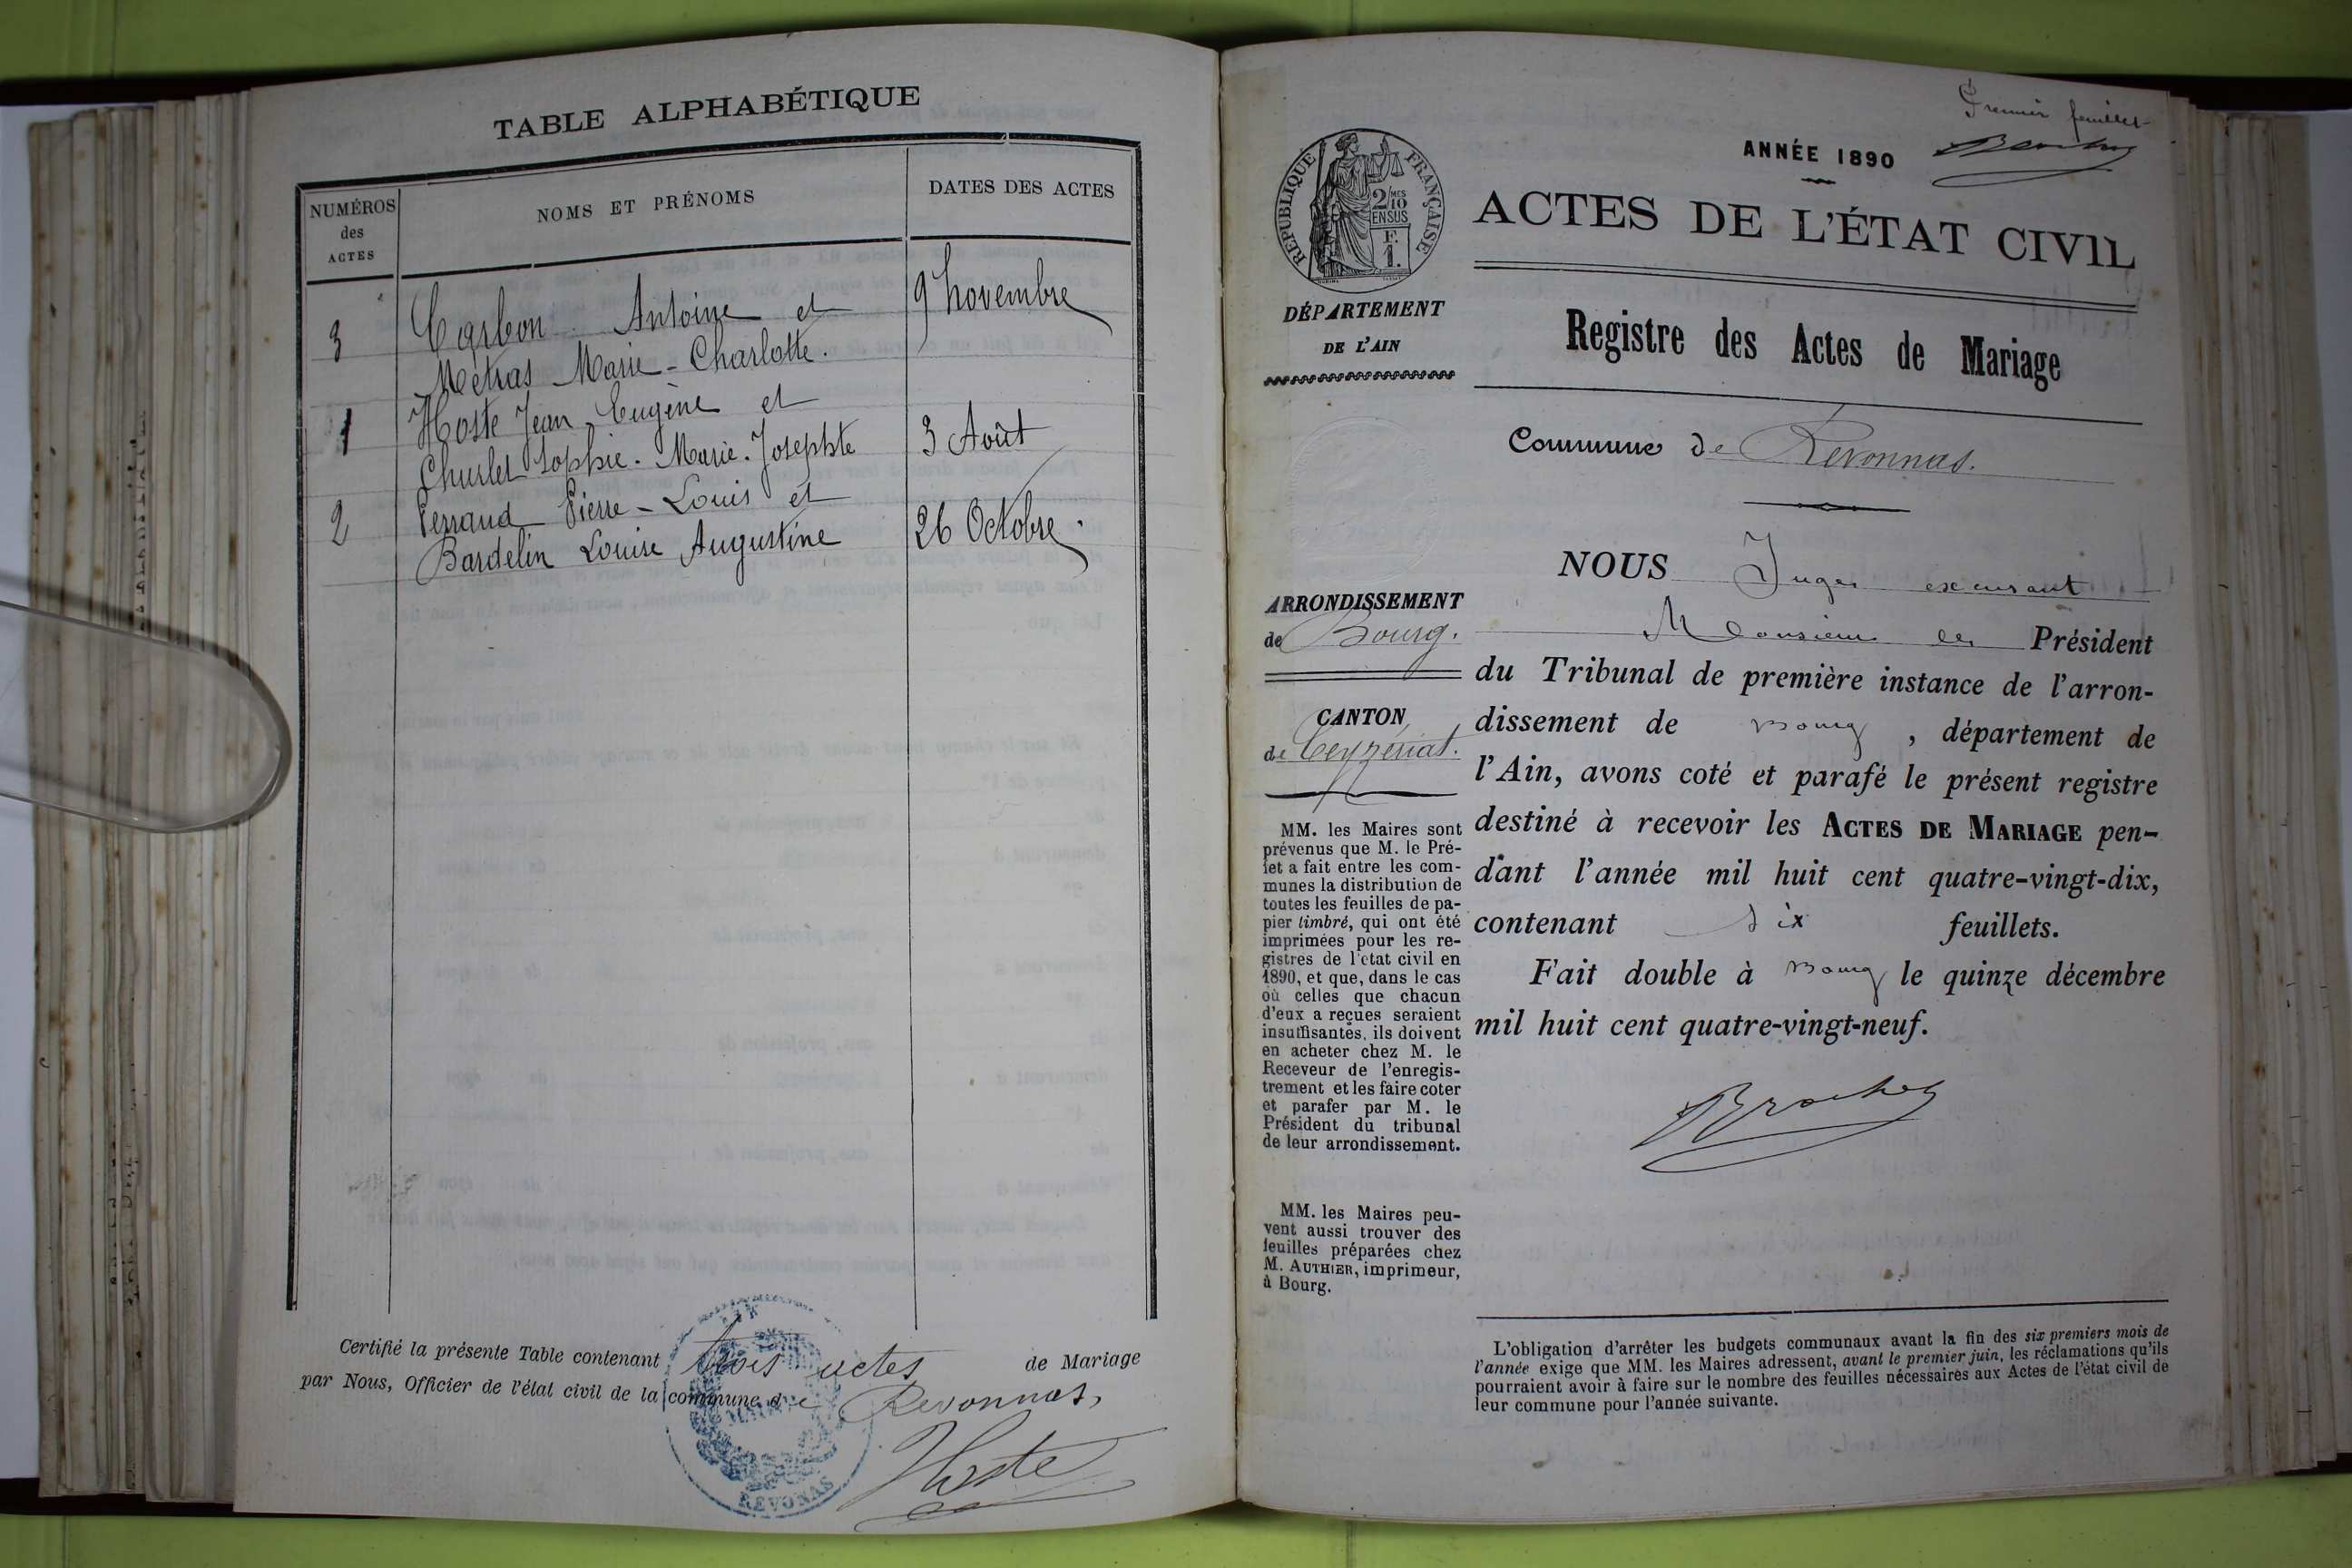 TABLE ALPHABÉTIQUE
NUMÉROS
des
ACTES
NOMS ET PRÉNOMS
DATES DES ACTES
3
Carbon Antoine et
9 novembre
Métras Marie-Charlotte.
1
Hoste Jean Eugène et
Churlet Sophie. Marie. Josephte
3 Août
2
Perraud Pierre-Louis et
Bardelin Louise Augustine
26 Octobre.
Certifié la présente Table contenant trois actes de Mariage
par Nous, Officier de l'état civil de la commune de Revonnas,
Hoste
MAIRIE
REVONAS
Premier feuillet
ANNÉE 1890
RÉPUBLIQUE FRANÇAISE
2/10 MES
EN SUS
F.
1.
ACTES DE L'ÉTAT CIVIL
DÉPARTEMENT
DE L'AIN
Registre des Actes de Mariage
Commune de Revonnas.
ARRONDISSEMENT
de Bourg.
CANTON
de Ceyzériat.
MM. les Maires sont
prévenus que M. le Pré-
fet a fait entre les com-
munes la distribution de
toutes les feuilles de pa-
pier timbré, qui ont été
imprimées pour les re-
gistres de l'état civil en
1890, et que, dans le cas
où celles que chacun
d'eux a reçues seraient
insuffisantes, ils doivent
en acheter chez M. le
Receveur de l'enregis-
trement et les faire coter
et parafer par M. le
Président du tribunal
de leur arrondissement.
MM. les Maires peu-
vent aussi trouver des
feuilles préparées chez
M. AUTHIER, imprimeur,
à Bourg.
NOUS Juge
Monsieur le Président
du Tribunal de première instance de l'arron-
dissement de Bourg, département de
l'Ain, avons coté et parafé le présent registre
destiné à recevoir les ACTES DE MARIAGE pen-
dant l'année mil huit cent quatre-vingt-dix,
contenant six feuillets.
Fait double à Bourg le quinze décembre
mil huit cent quatre-vingt-neuf.
L'obligation d'arrêter les budgets communaux avant la fin des six premiers mois de
l'année exige que MM. les Maires adressent, avant le premier juin, les réclamations qu'ils
pourraient avoir à faire sur le nombre des feuilles nécessaires aux Actes de l'état civil de
leur commune pour l'année suivante.